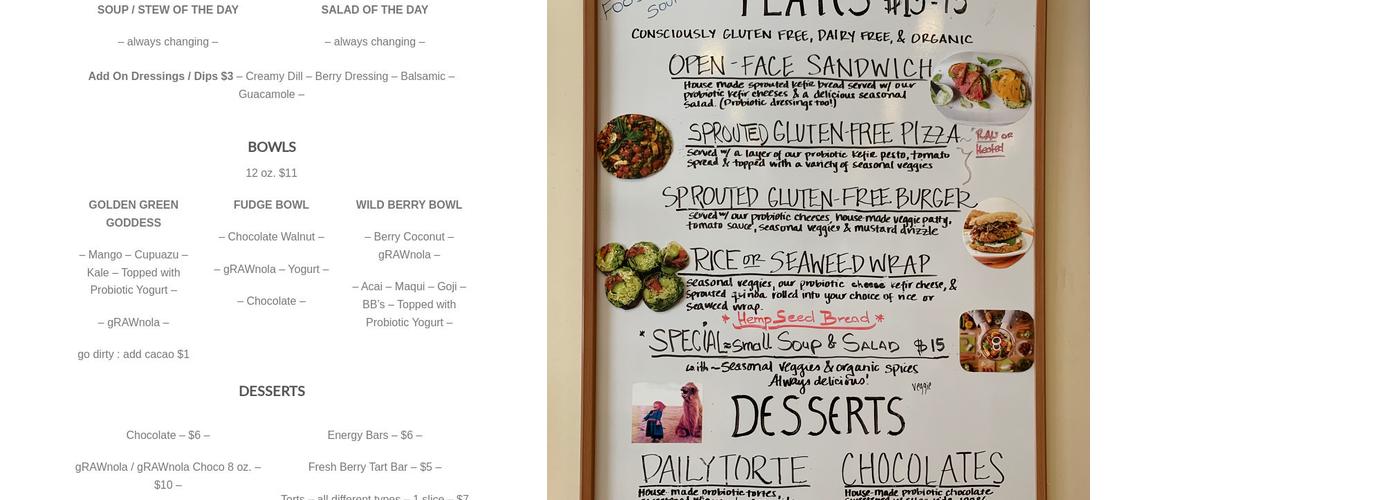 SOUP / STEW OF THE DAY
– always changing –
SALAD OF THE DAY
– always changing –
Add On Dressings / Dips $3 – Creamy Dill – Berry Dressing – Balsamic –
Guacamole –
BOWLS
12 oz. $11
GOLDEN GREEN
GODDESS
– Mango – Cupuazu –
Kale – Topped with
Probiotic Yogurt –
– gRAWnola –
go dirty : add cacao $1
FUDGE BOWL
– Chocolate Walnut –
– gRAWnola – Yogurt –
– Chocolate –
WILD BERRY BOWL
– Berry Coconut –
gRAWnola –
– Acai – Maqui – Goji –
BB’s – Topped with
Probiotic Yogurt –
DESSERTS
Chocolate – $6 –
gRAWnola / gRAWnola Choco 8 oz. –
$10 –
Energy Bars – $6 –
Fresh Berry Tart Bar – $5 –
Torts – all different types – 1 slice – $7
SOUP
CONSCIOUSLY GLUTEN FREE, DAIRY FREE, & ORGANIC
OPEN-FACE SANDWICH
House made sprouted kefir bread served w/ our
probiotic kefir cheeses & a delicious seasonal
salad. (Probiotic dressings too!)
SPROUTED GLUTEN-FREE PIZZA
RAW or
Heated
Served w/ a layer of our probiotic kefir pesto, tomato
spread & topped with a variety of seasonal veggies
SPROUTED GLUTEN-FREE BURGER
served w/ our probiotic cheeses, house-made veggie patty,
tomato sauce, seasonal veggies & mustard drizzle
RICE OR SEAWEED WRAP
seasonal veggies, our probiotic cheese kefir cheese, &
sprouted quinoa rolled into your choice of rice or
seaweed wrap.
* Hemp Seed Bread *
* SPECIAL = Small Soup & SALAD $15
with ~ Seasonal veggies & organic spices
Always delicious!
veggie
DESSERTS
DAILY TORTE
House-made probiotic tortes,
CHOCOLATES
House-made probiotic chocolate